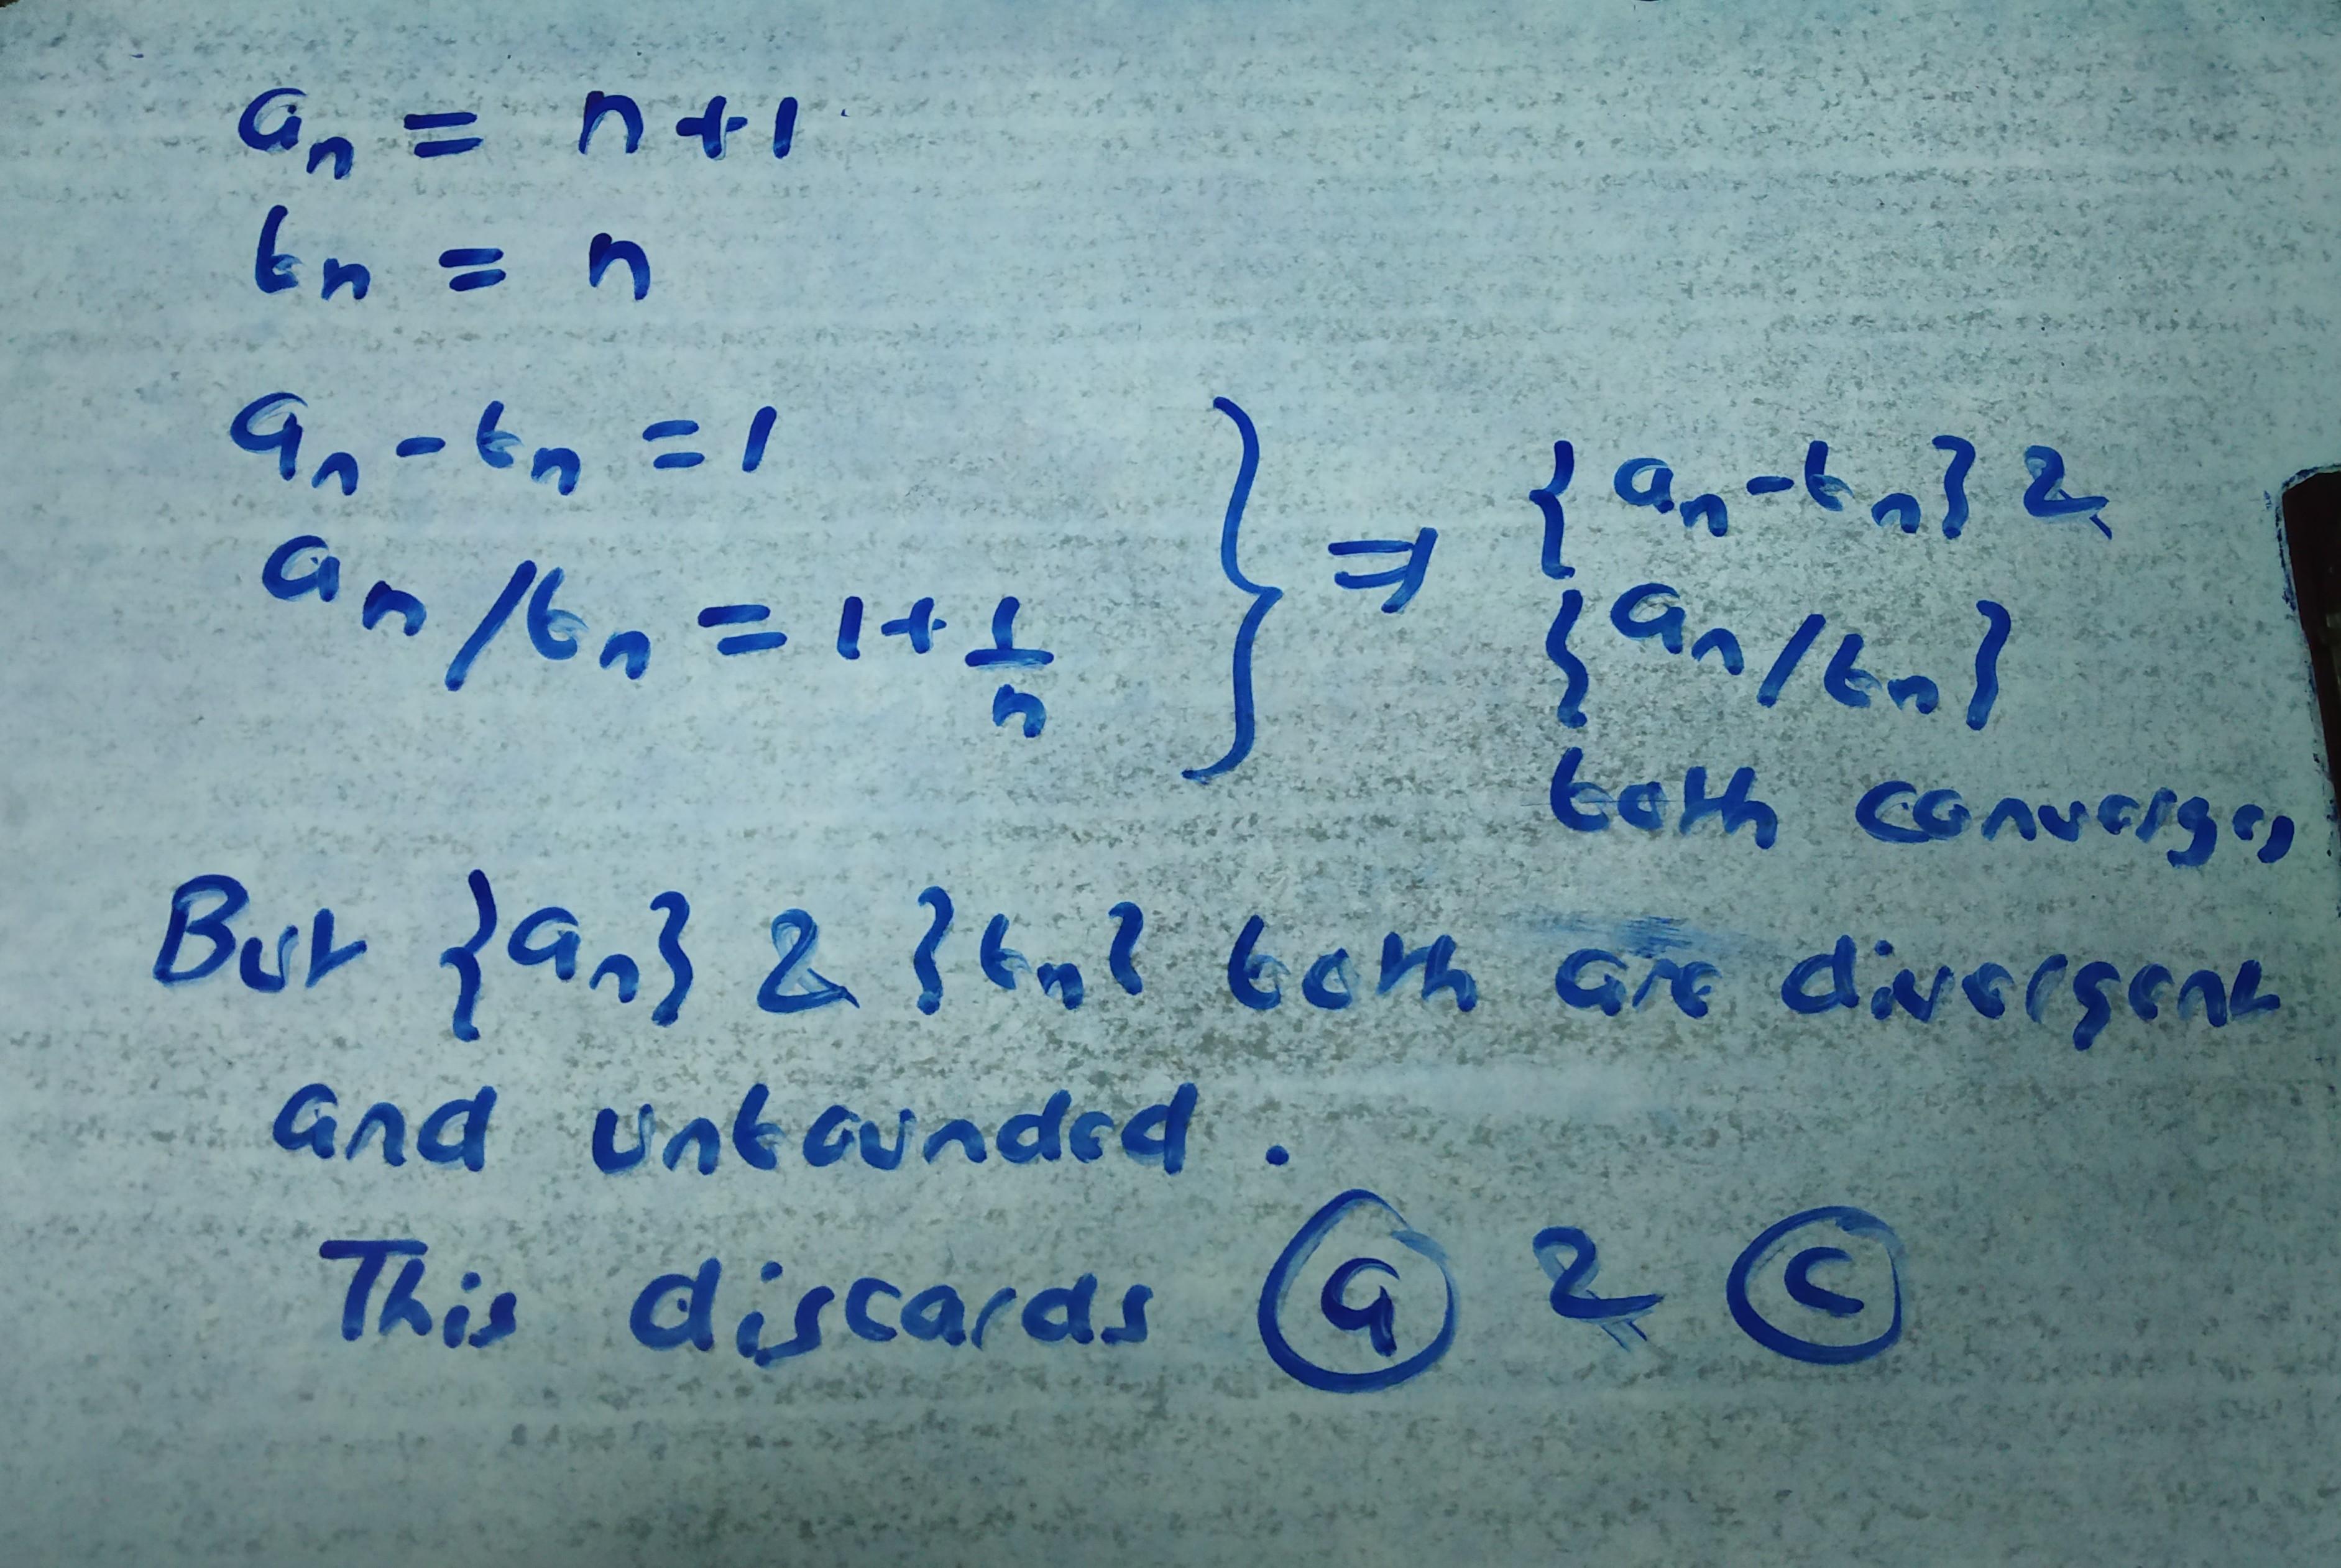 an = n+1
bn = n
an - bn = 1
an/bn = 1 + 1/n } ⇒ {an - bn} & {an/bn} both converges
But {an} & {bn} both are divergent
and unbounded.
This discards (a) & (c)